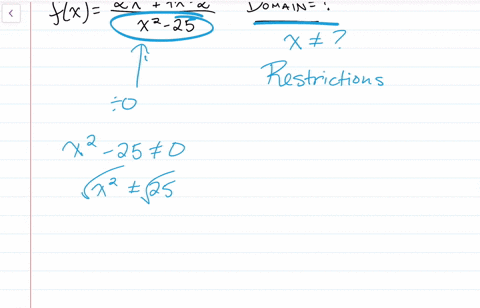 f(x) = 2x + 7x - 2 / x² - 25
DOMAIN = ?
x ≠ ?
Restrictions
÷0
x² - 25 ≠ 0
√x² ≠ √25